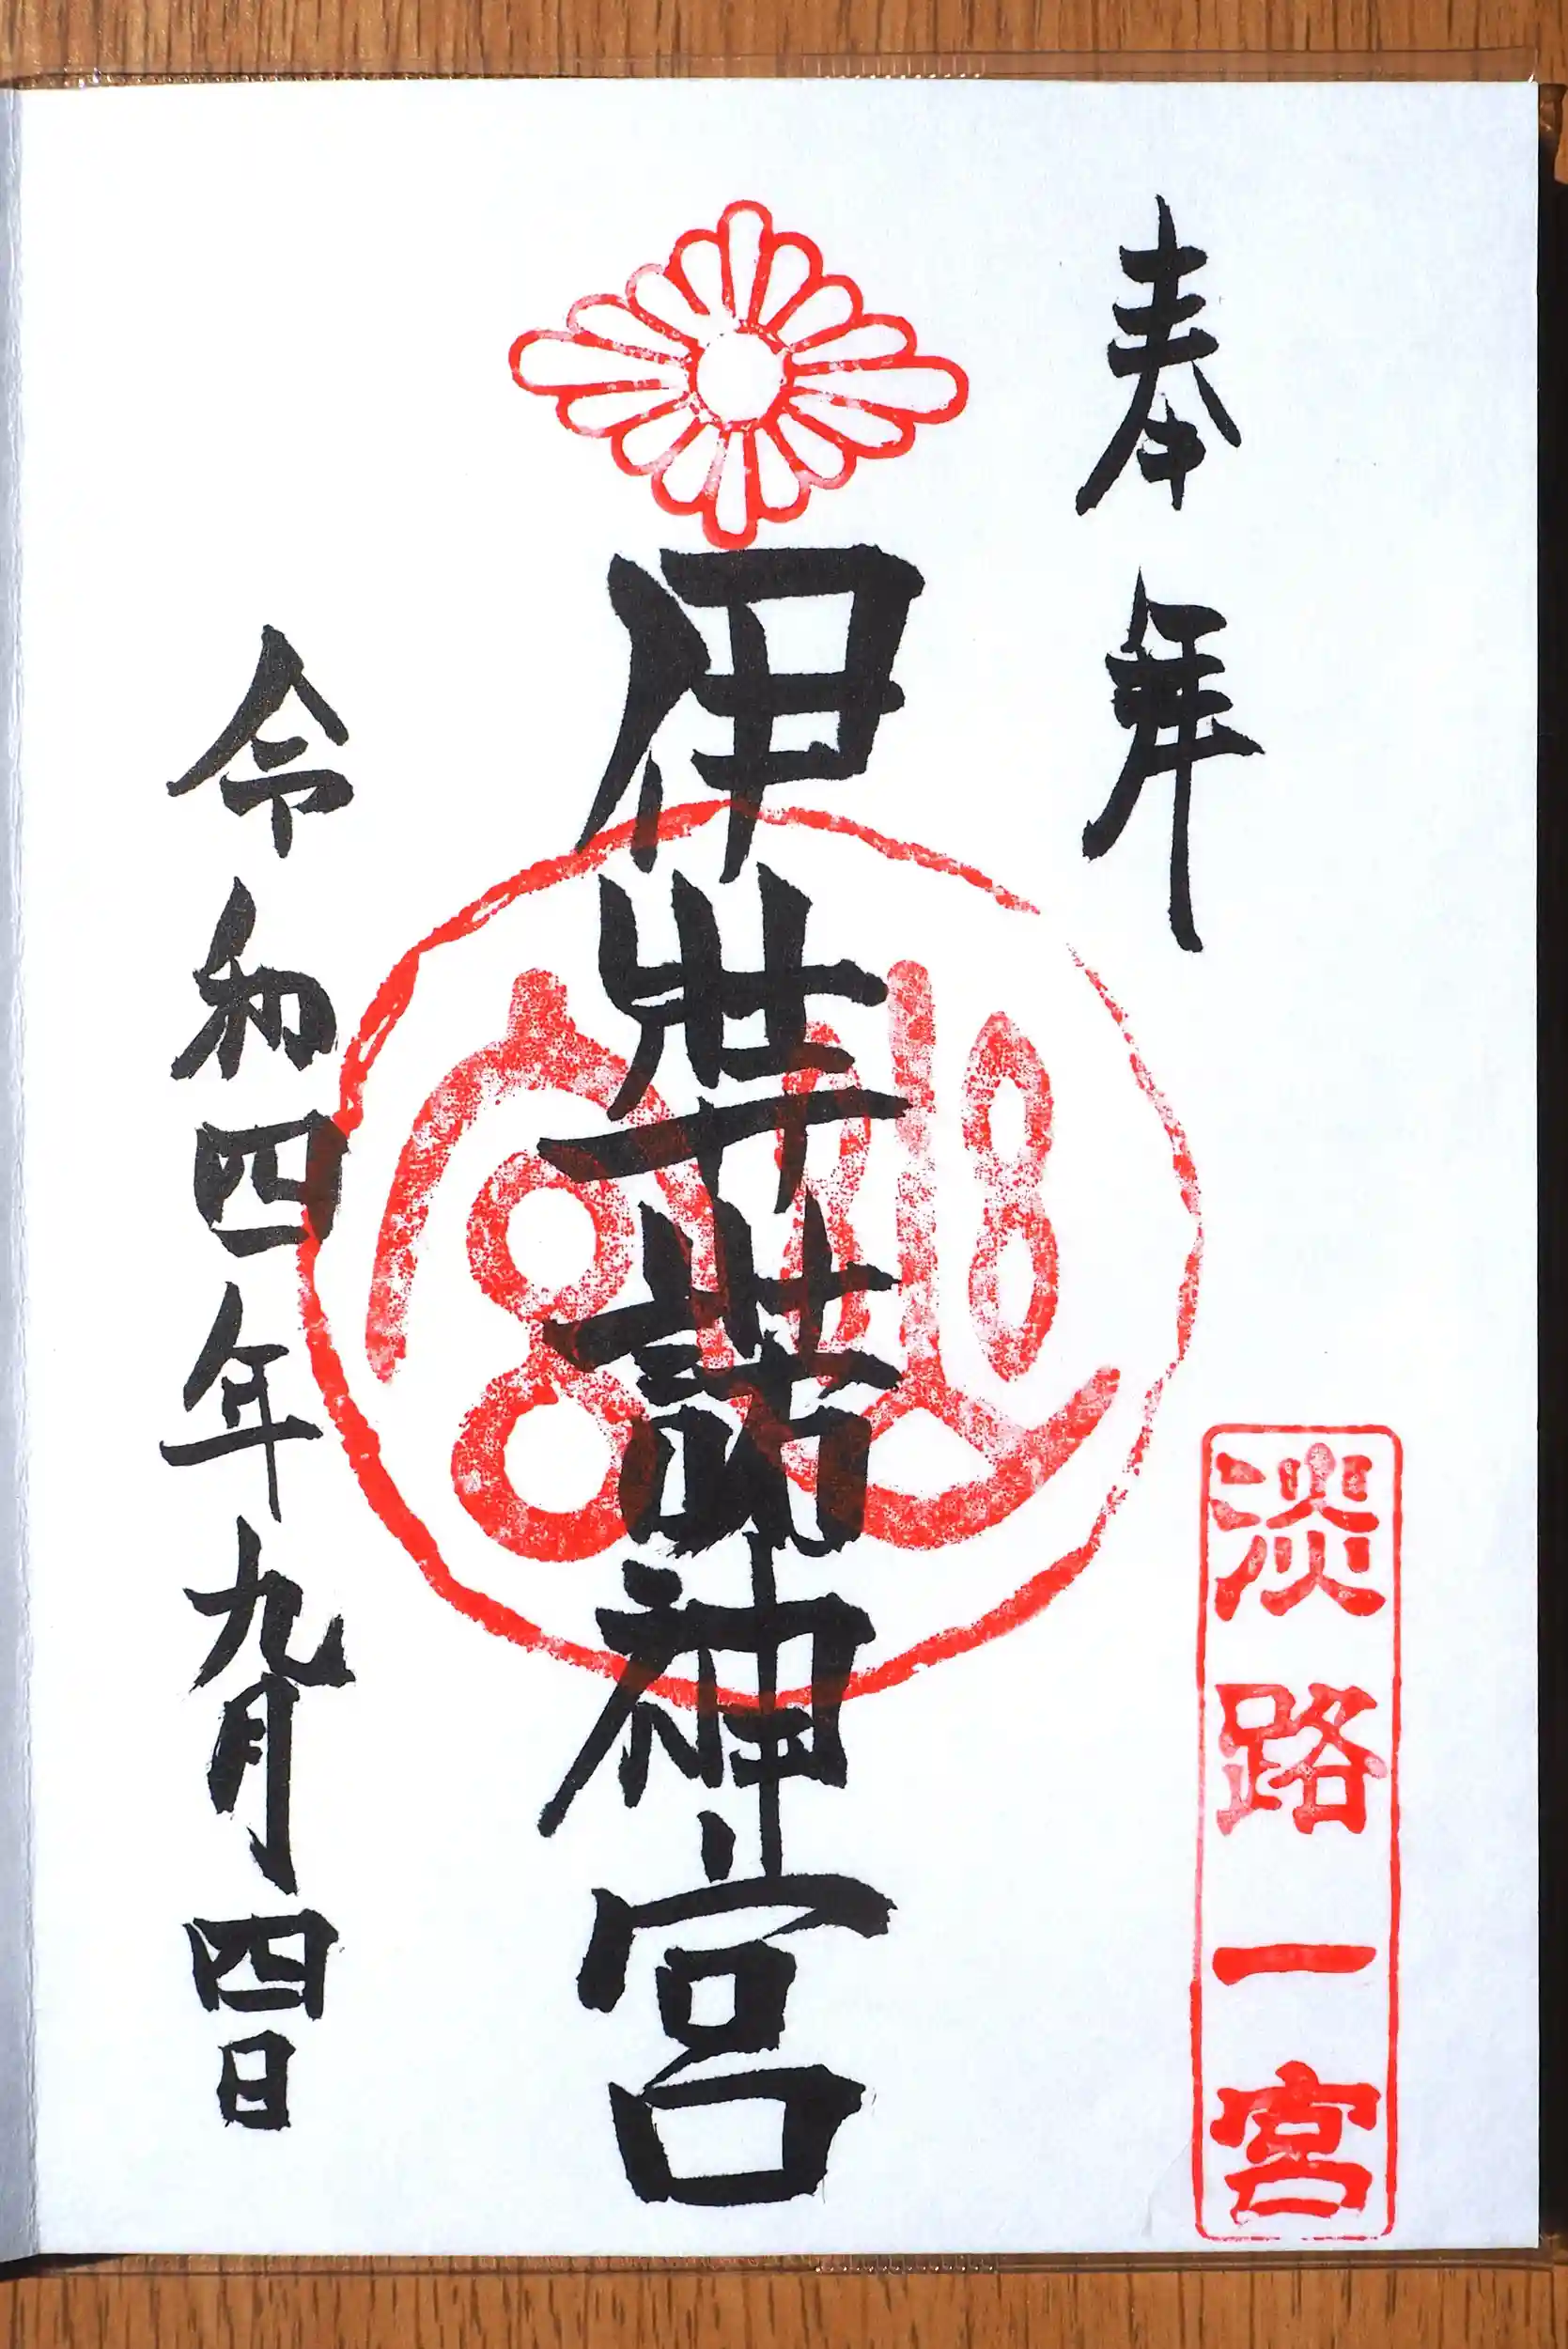 奉拝
淡路一宮
伊弉諾神宮
幽宮
令和四年九月四日